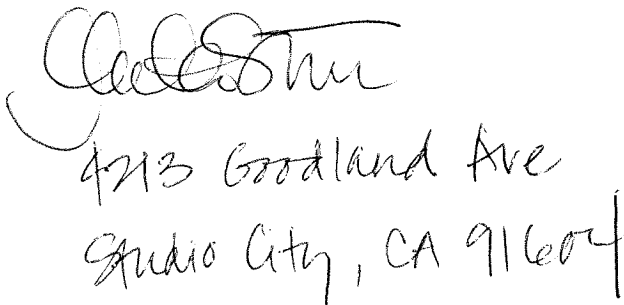 4213 Goodland Ave
Studio City, CA 91604